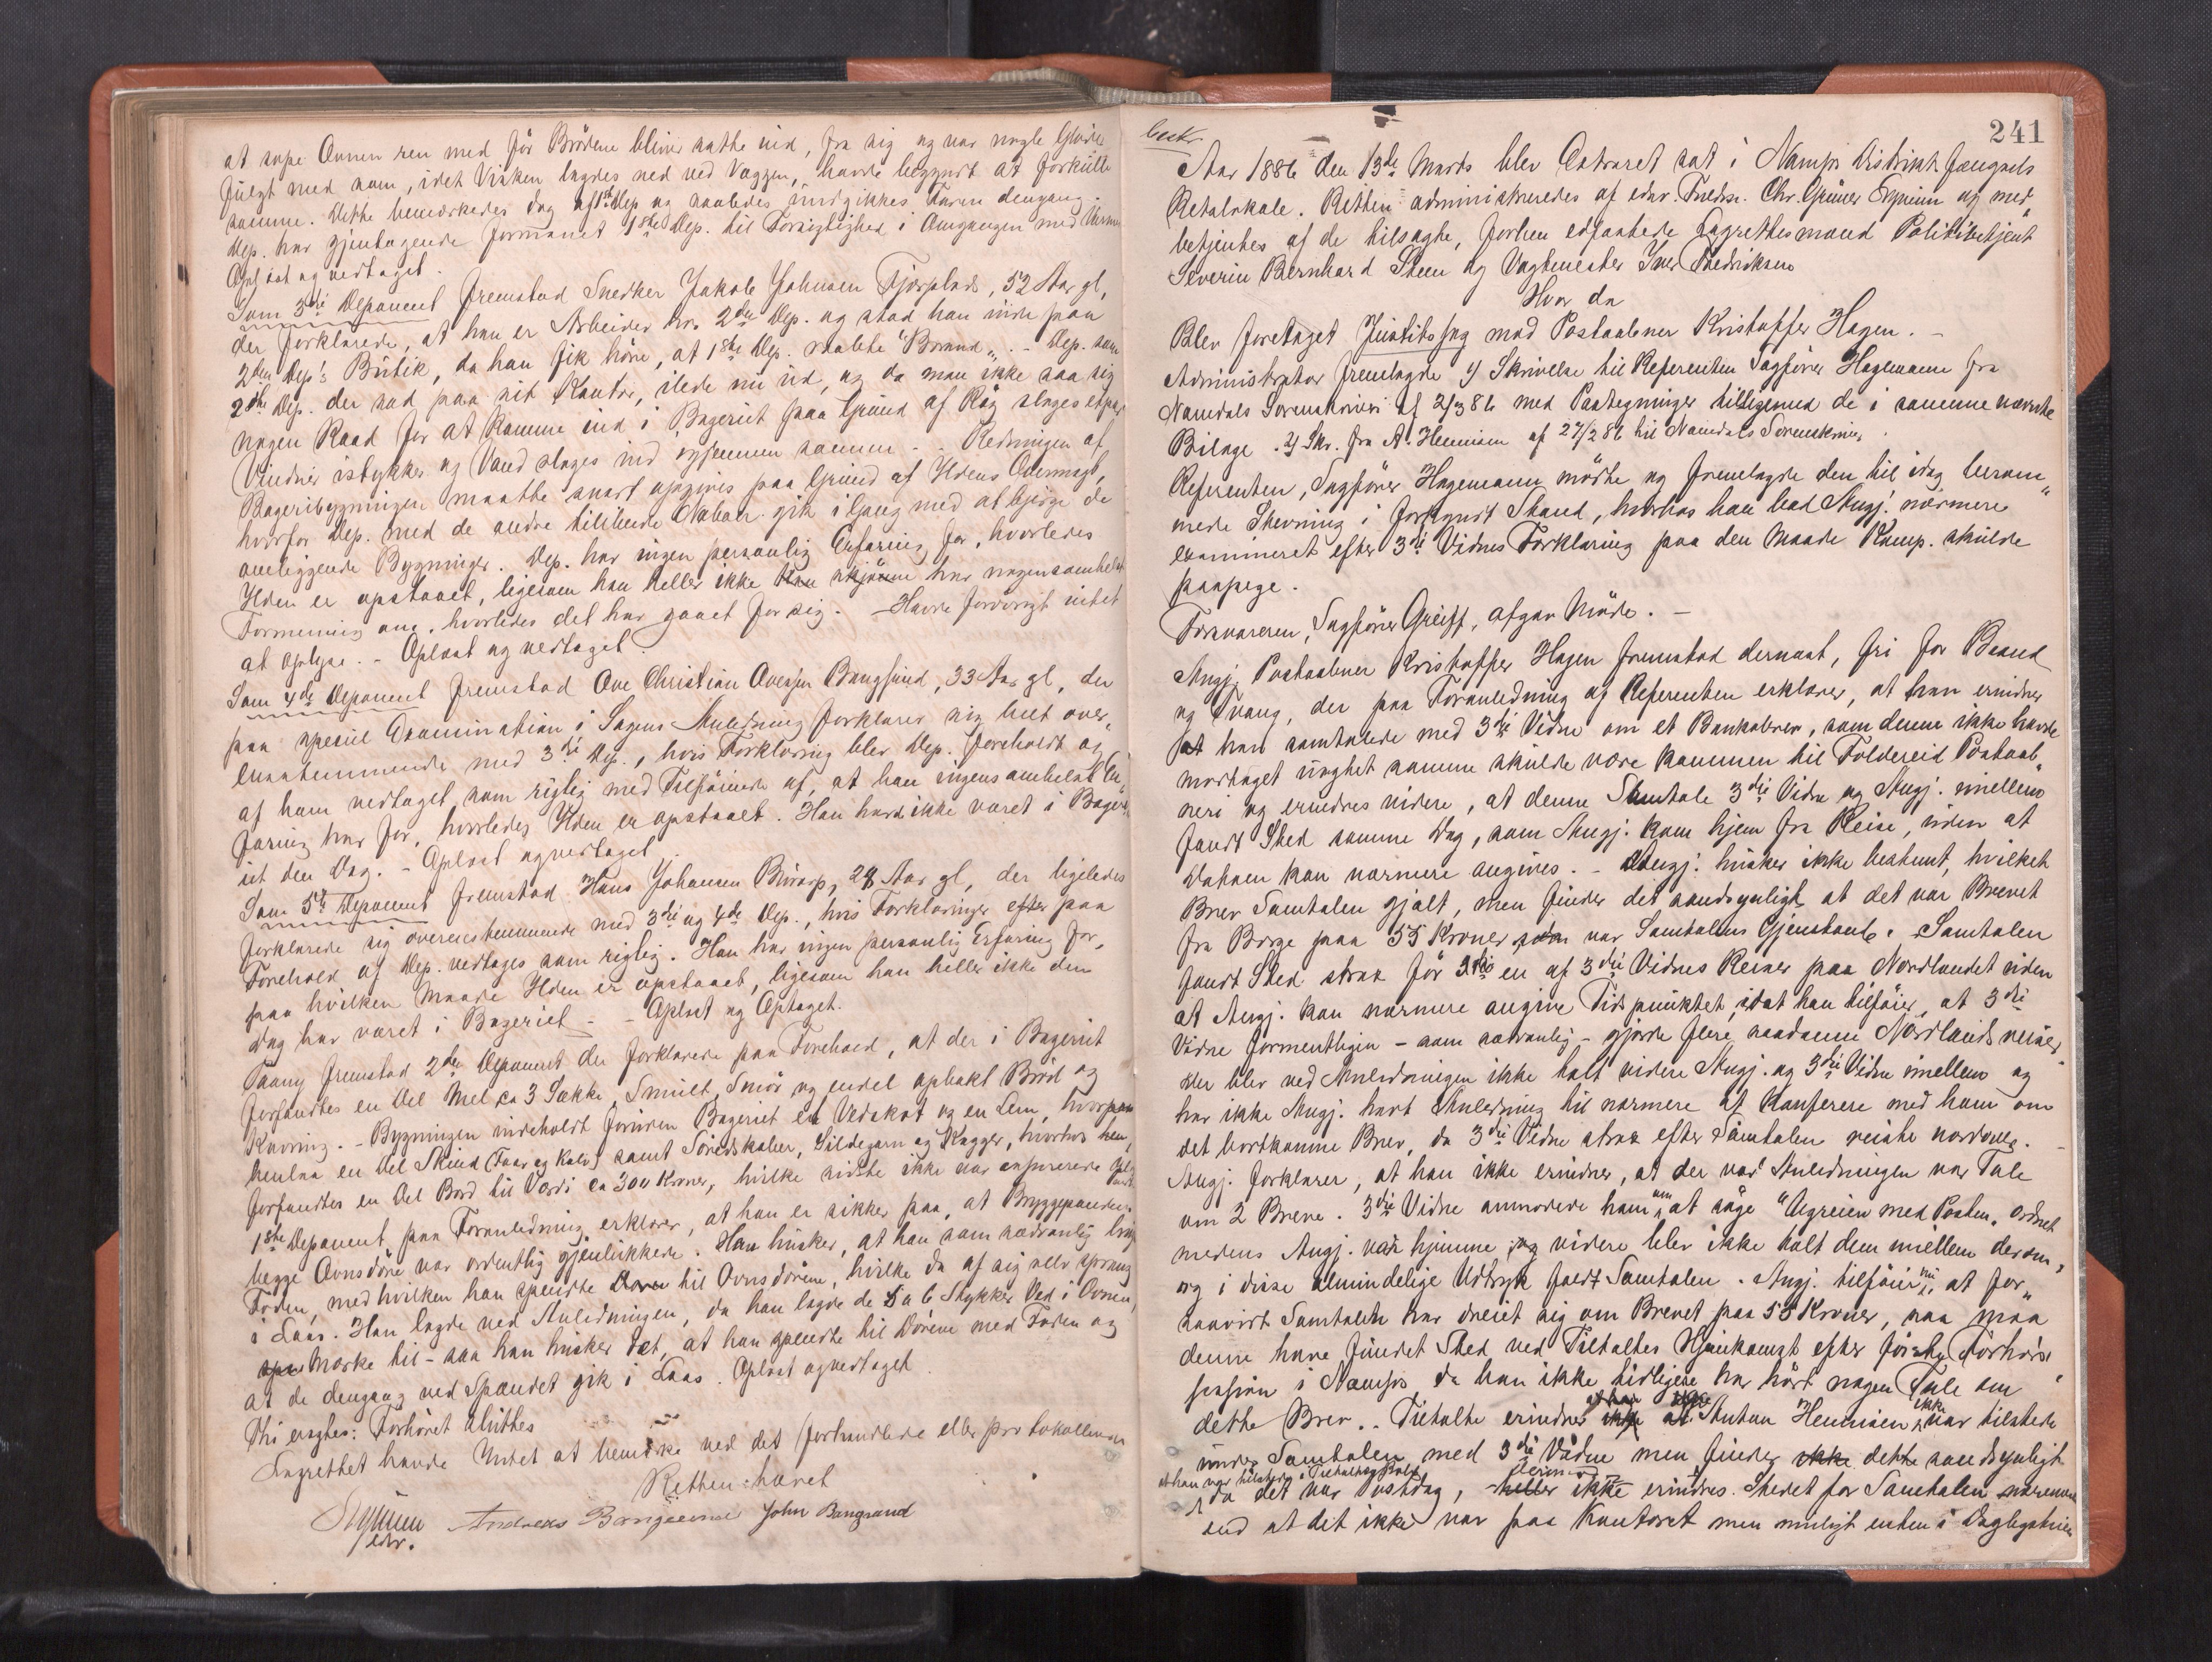 at sope Ovnen ren med før Brødene bliver satte ind, fra sig og var nogle Gløder
fulgt med som, idet Visken lagdes ned ved Væggen, havde begyndt at forkulle
samme. Dette bemærkedes dog af 1ste Dep og saaledes undgikkes Faren dengang.
Dep. har gjentagende formanet 1ste Dep. til Forsigtighed i Omgangen med Varme
Oplæst og vedtaget.
Som 3die Deponent fremstod Snedker Jakob Johnsen Fjærplads, 52 Aar gl,
der forklarede, at han er Arbeider hos 2den Dep. og stod han inde paa
2den Dep's Butik, da han fik høre, at 1ste Dep. raabte "Brand". - Dep. samt
2den Dep. der sad paa sit Kontor, ilede nu ud, og da man ikke saa sig
nogen Raad for at komme ind i Bageriet paa Grund af Røg sloges et par
Vinduer istykker og Vand sloges ind igjennem samme. - Redningen af
Bageribygningen maatte snart opgives paa Grund af Ildens Overmagt,
hvorfor Dep. med de andre tililende Naboer gik igang med at bjerge de
omliggende Bygninger. Dep. har ingen personlig Erfaring for, hvorledes
Ilden er opstaaet, ligesom han heller ikke kan skjønne har nogensomhelst
Formening om, hvorledes det har gaaet for sig. - Havde forøvrigt intet
at oplyse. - Oplæst og vedtaget.
Som 4de Deponent fremstod Ove Christian Ovesen Bangsund, 33 Aar gl, der
paa speciel Examination i Sagens Anledning forklarer sig helt over"
ensstemmende med 3die Dep., hvis Forklaring blev Dep. foreholdt og
af ham vedtaget som rigtig med Tilføiende af, at han ingensomhelst Er"
faring har for, hvorledes Ilden er opstaaet. Han havde ikke været i Bageri"
et den Dag. - Oplæst og vedtaget.
Som 5te Deponent fremstod Hans Johansen, 28 Aar gl, der ligeledes
forklarede sig overensstemmende med 3die og 4de Dep., hvis Forklaringer efter paa
Forehold af Dep. vedtages som rigtig. Han har ingen personlig Erfaring for,
paa hvilken Maade Ilden er opstaaet, ligesom han heller ikke den
Dag har været i Bageriet. - Oplæst og Optaget.
Paany fremstod 2den Deponent der forklarede paa Forehold, at der i Bageriet
forfandtes en Del Mel ca 3 Sække, Smult, Smør og endel opbakt Brød og
Kavring. - Bygningen indeholdt foruden Bageriet et Vedskot og en Lem, hvorpaa
henlaa en Del Skind (Faar og Kalv) samt Sildegarn og Kagger, hvorhos hen,
forfandtes en Del Bord til Værdi ca 300 Kroner, hvilke sidste ikke var assurerede.
1ste Deponent, paa Foranledning, erklærer, at han er sikker paa, at
begge Ovnsdøre var ordentlig gjenlukkede. Han husker, at han som sædvanlig
Foden, med hvilken han spendte Døren til Ovnsdørene, hvilke da af sig selv sprang
i Laas. Han lagde ved Anledningen, da han lagde de 5 a 6 Stykker Ved i Ovnen,
spe Mærke til - saa han husker det, at han spendte til Dørene med Foden og
at de dengang ved Spændet gik i Laas. Oplæst og vedtaget.
Thi eragtes: Forhøret sluttes
Lagrettet havde Intet at bemærke ved det forhandlede eller protokollerede
Retten hævet
Eqnum Andreas John Bangsund
edsv.
241
besk.
Aar 1886 den 13de Marts blev Extraret sat i Namsos Distrikts Fængsels
Retslokale. Retten administreredes af edsv. Fuldm. Chr. Grüner Eqnum og med"
betjentes af de tilsagte, forhen edfæstede Lagrettesmænd Politibetjent
Severin Bernhard Steen og Vagtmester Iver Fredriksen
Hvor da
Blev foretaget Justitssag mod Postaabner Kristoffer Hagen. -
Administrator fremlagde 1/ Skrivelse til Referenten Sagfører Hagemann fra
Namdals Sorenskriveri af 2/3 86 med Paategninger tilligemed de i samme nævnte
Bilage. 2/ Skr. fra A. Hennisen af 27/2 86 til Namdals Sorenskriver.
Referenten, Sagfører Hagemann mødte og fremlagde den til idag beram"
mede Stevning i forkyndt Stand, hvorhos han bad Angj. nærmere
examineret efter 3die Vidnes Forklaring paa den Maade Komp. skulde
paapege.
Forsvareren, Sagfører Greiff, afgav Møde. -
Angj. Postaabner Kristoffer Hagen fremstod dernæst, fri for Baand
og Tvang, der paa Foranledning af Referenten erklærer, at han erindrer
at han samtalede med 3die Vidne om et Bankobrev, som denne ikke havde
modtaget uagtet samme skulde være kommen til Foldereid Postaab"
neri og erindres videre, at denne Samtale 3die Vidne og Angj. imellem
fandt Sted samme Dag, som Angj. kom hjem fra Reise, uden at
Datoen kan nærmere angives. - Angj. husker ikke bestemt, hvilket
Brev Samtalen gjalt, men finder det sandsynligt, at det var Brevet
fra Børge paa 55 Kroner som var Samtalens Gjenstand. Samtalen
fandt Sted strax før en af 3die Vidnes Reiser paa Nordlandet uden
at Angj. kan nærmere angive Tidspunktet, idet han tilføier, at 3die
Vidne formentligen - som sædvanlig - gjorde flere saadanne Nordlandsreiser.
Der blev ved Anledningen ikke talt videre Angj. og 3die Vidne imellem og
har ikke Angj. havt Anledning til nærmere at konferere med ham om
det bortkomne Brev, da 3die Vidne strax efter Samtalen reiste nordover. -
Angj. forklarer, at han ikke erindrer, at der ved Anledningen var Tale
om 2 Breve. 3die Vidne anmodede ham om at søge "Agreien med Posten" ordnet
medens Angj. var hjemme og videre blev ikke talt dem imellem derom,
og i disse almindelige Udtryk faldt Samtalen. Angj. tilføier nu, at for"
saavidt Samtalen har dreiet sig om Brevet paa 55 Kroner, saa maa
denne have fundet Sted ved Tiltaltes Hjemkomst efter første Forhørs"
session i Namsos, da han ikke tidligere har hørt nogen Tale om
dette Brev. - Tiltalte erindrer ikke at han Anton Hennisen ikke var tilstede
under Samtalen med 3die Vidne men finder ikke dette sandsynligt
at han var tilstede i Tiltaltes Kold
da det var Postdag, heller derimod ikke erindres Stedet for Samtalen nærmere
end at det ikke var paa Kontoret men muligt enten i Daglystuen